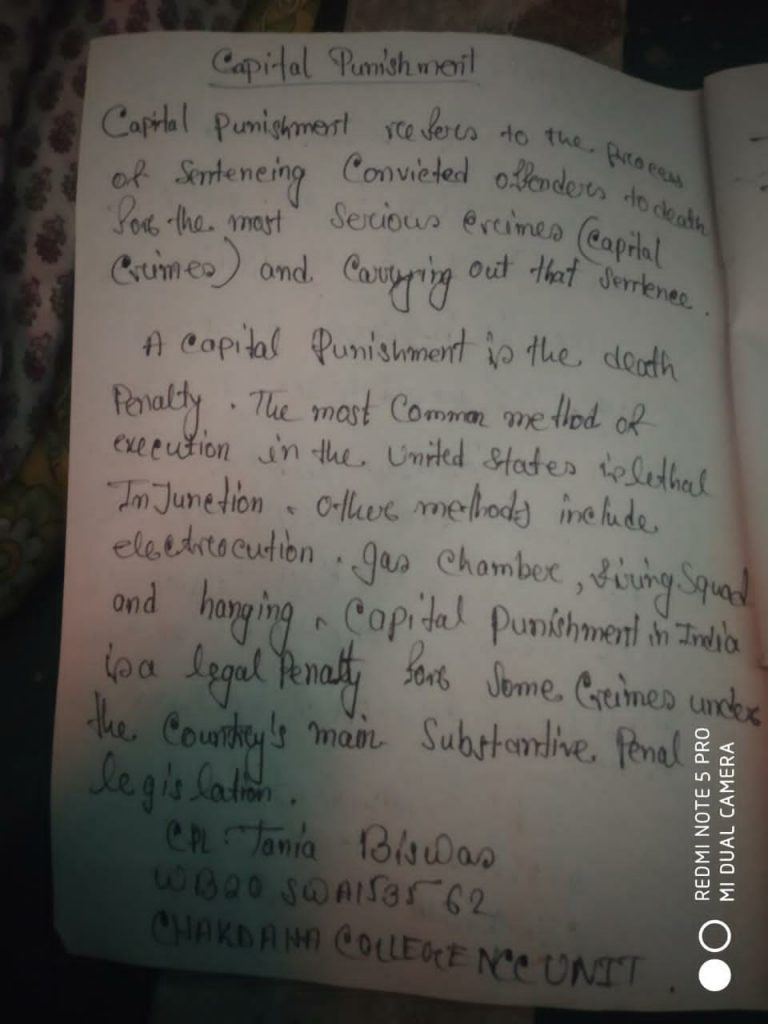 Capital Punishment
Capital Punishment refers to the process
of Sentencing Convicted offenders to death
for the most serious crimes (Capital
Crimes) and Carrying out that Sentence.
A Capital Punishment is the death
Penalty. The most Common method of
execution in the United States is lethal
InJunction. other methods include
electrocution. gas chamber, firing Squad
and hanging. Capital Punishment in India
is a legal Penalty for Some Crimes under
the Country's main Substantive Penal
legislation.
CPL Tania Biswas
WB20 SWA153562
CHAKDAHA COLLEGE NCC UNIT.
REDMI NOTE 5 PRO
MI DUAL CAMERA